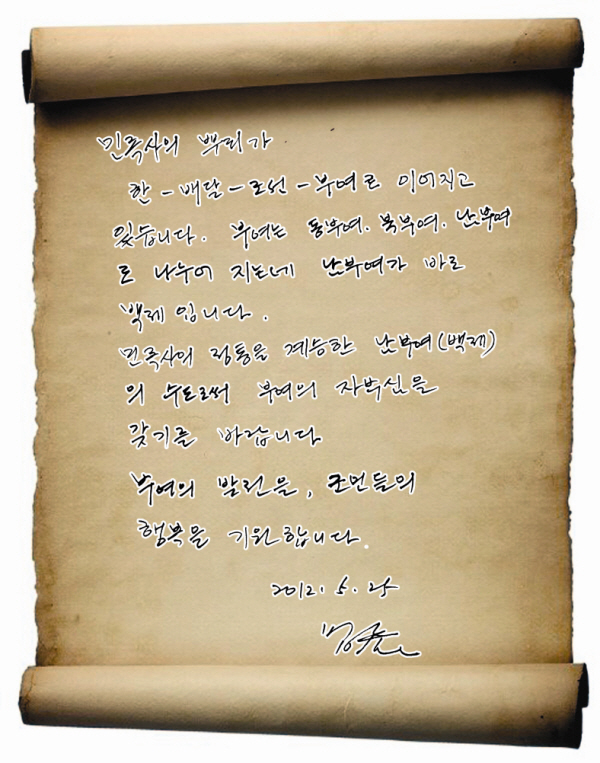 민족사의 뿌리가
한 - 배달 - 조선 - 부여로 이어지고
있습니다. 부여는 동부여. 북부여. 남부여
로 나누어 지는데 남부여가 바로
백제 입니다.
민족사의 정통을 계승한 남부여(백제)
의 수도로써 부여의 자부심을
갖기를 바랍니다
부여의 발전을, 군민들의
행복을 기원합니다.
2012. 5. 25